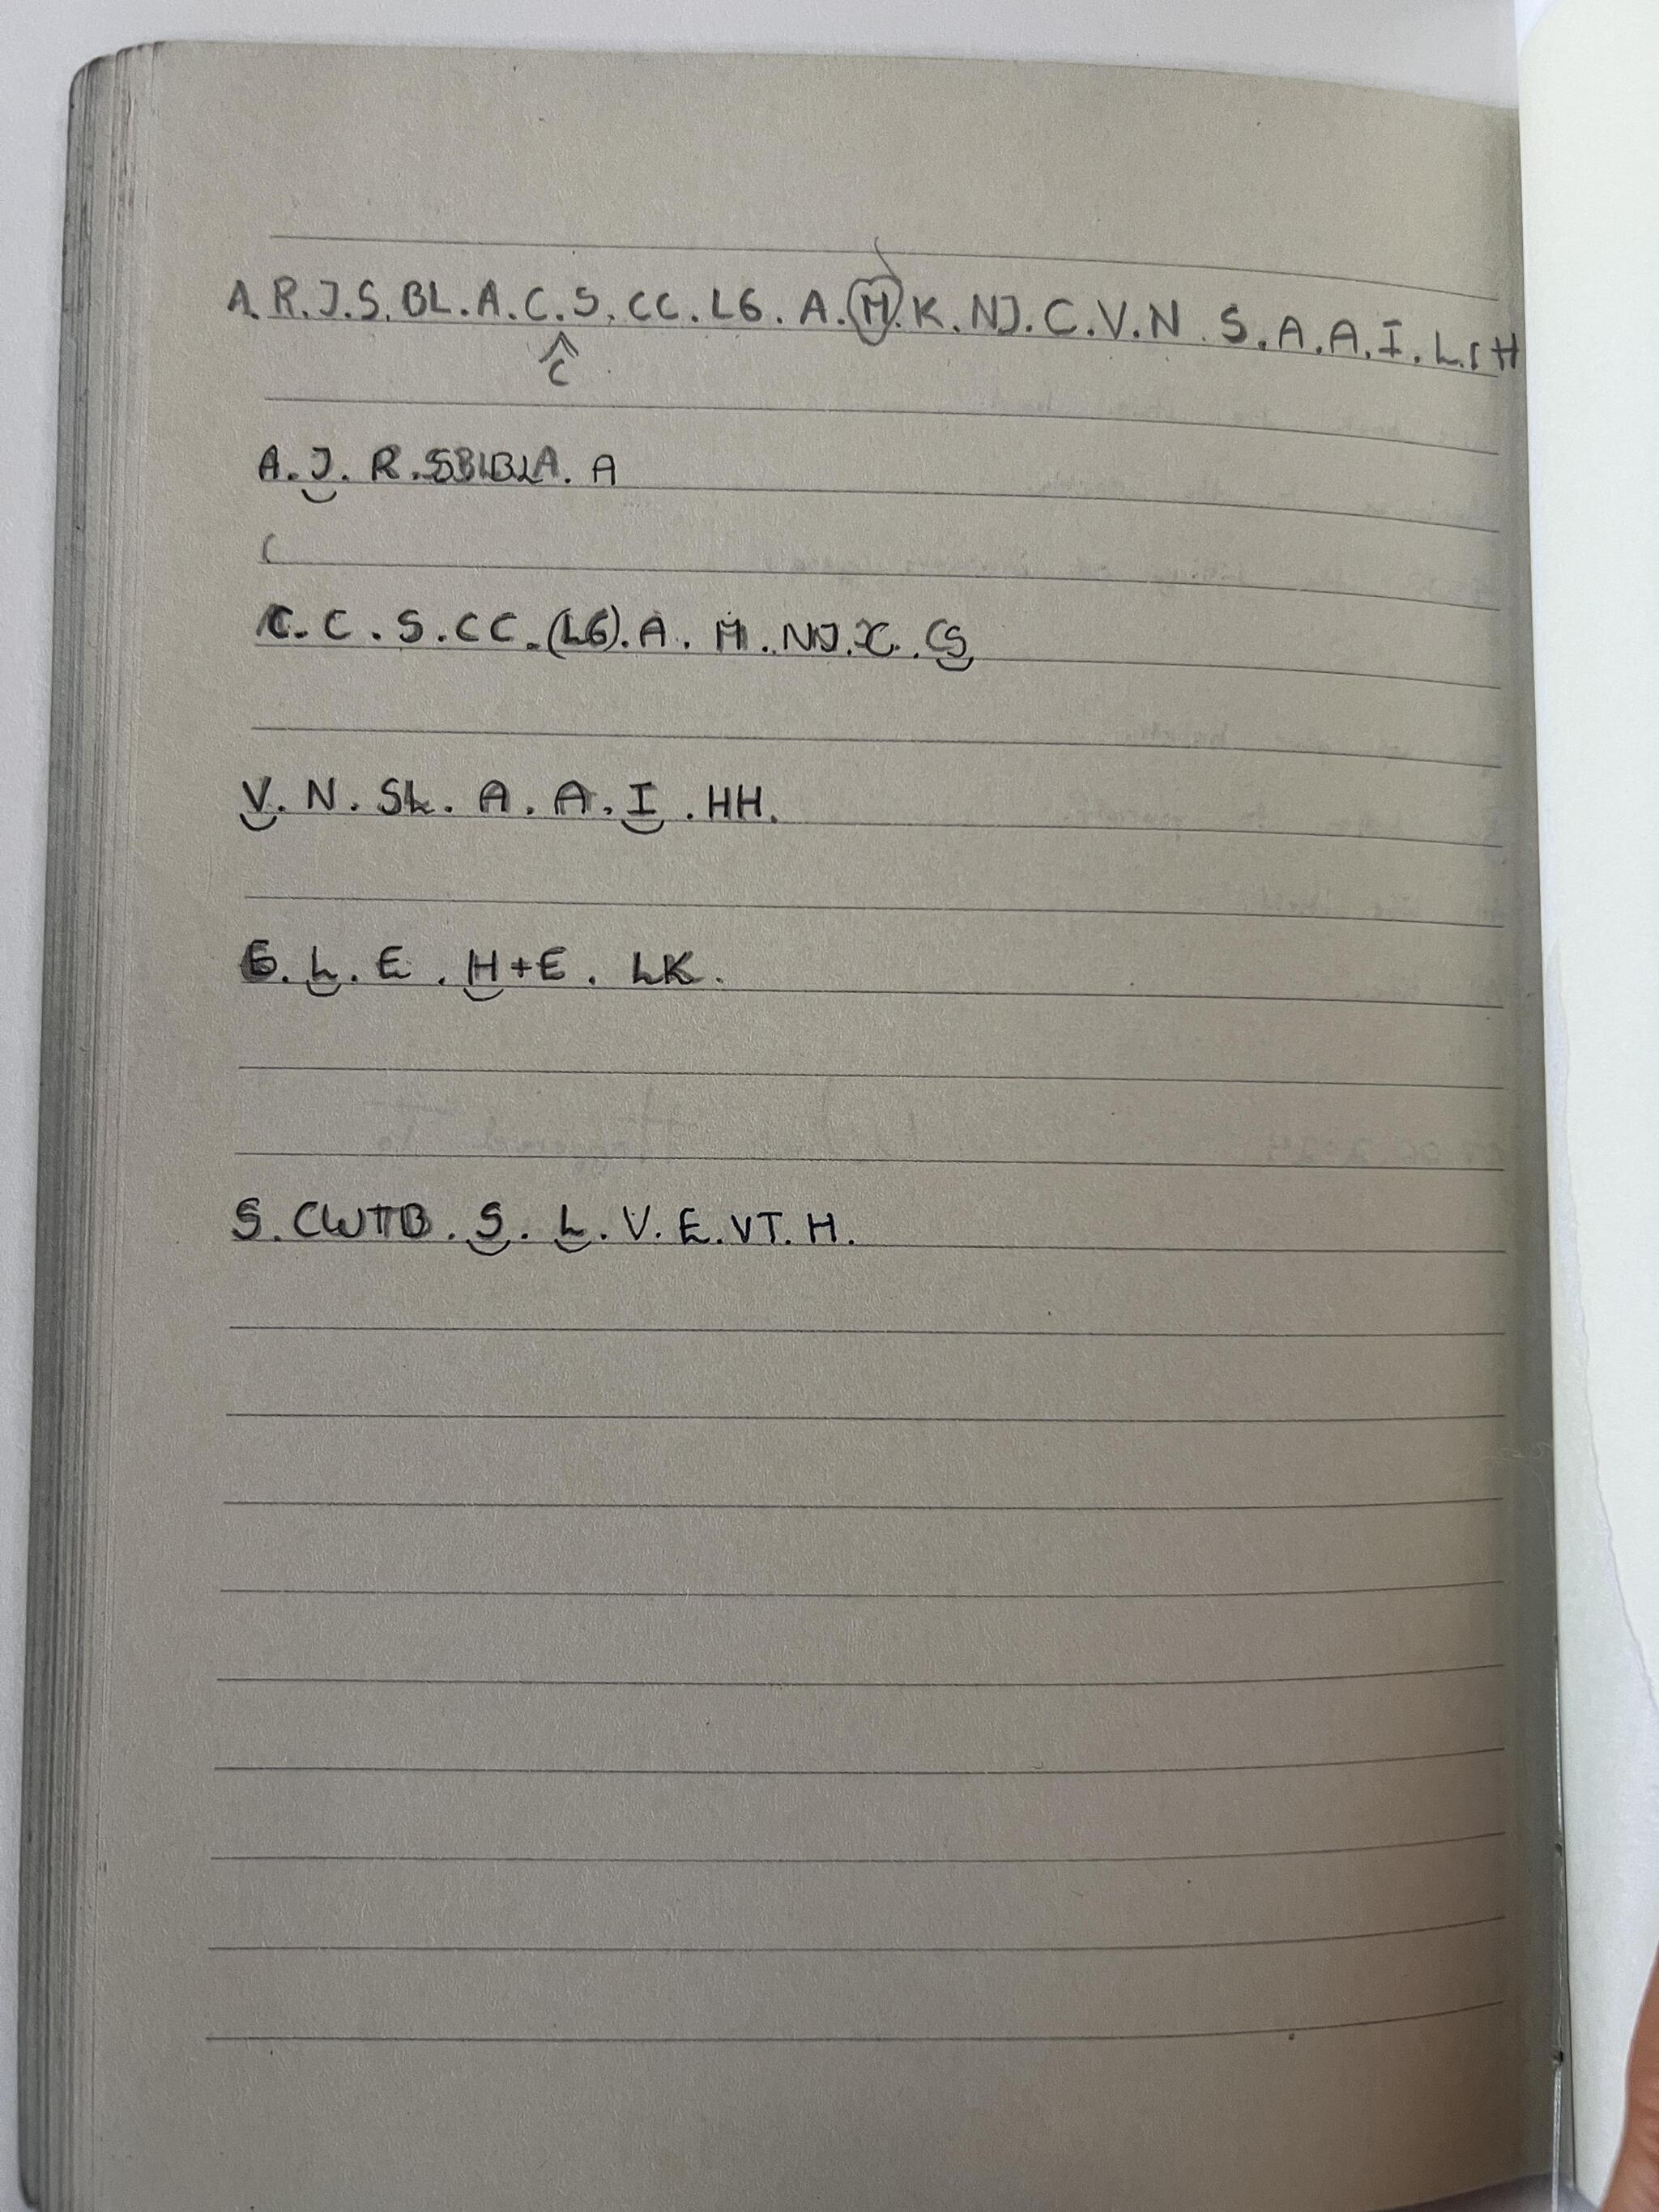 A.R.J.S.BL.A.C.S.CC.LG.A.H.K.NJ.C.V.N.S.A.A.I.L.
C
A.J.R.SBLBLA.A
(
C.C.S.CC.(LG).A.H.NJ.C.CS
V.N.SL.A.A.I.HH.
E.L.E.H+E.LK.
S.CWTB.S.L.V.E.VT.H.